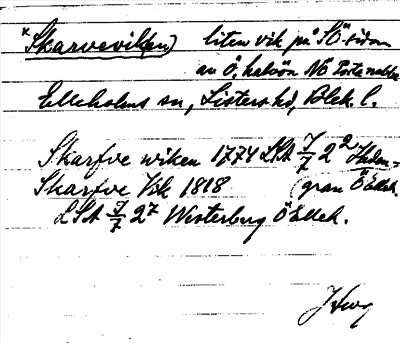 *Skarvevik(en) liten vik på SÖ-sidan
av Ö. halvön NÖ
Elleholms sn, Listers hd, Blek. l.
Skarfve wiken 1774 LSA 7/7 2²
Skarfve Vik 1818 (gran Ö Ellek.
LSA 7/7 2⁷ Westerberg Ö Ellek.